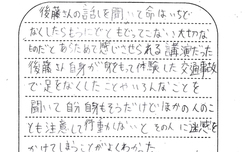 後藤さんの話しを聞いて命はいちど
なくしたらもうにどともどってこない大切な
ものだとあらためて感じさせられる講演だった
後藤さん自身が身をもって体験した交通事故
で足をなくしたことやいろんなことを
聞いて自分自身もそうだけどほかの人のこ
とも注意して行動しないとその人に迷惑を
かけてしまうことがよくわかった